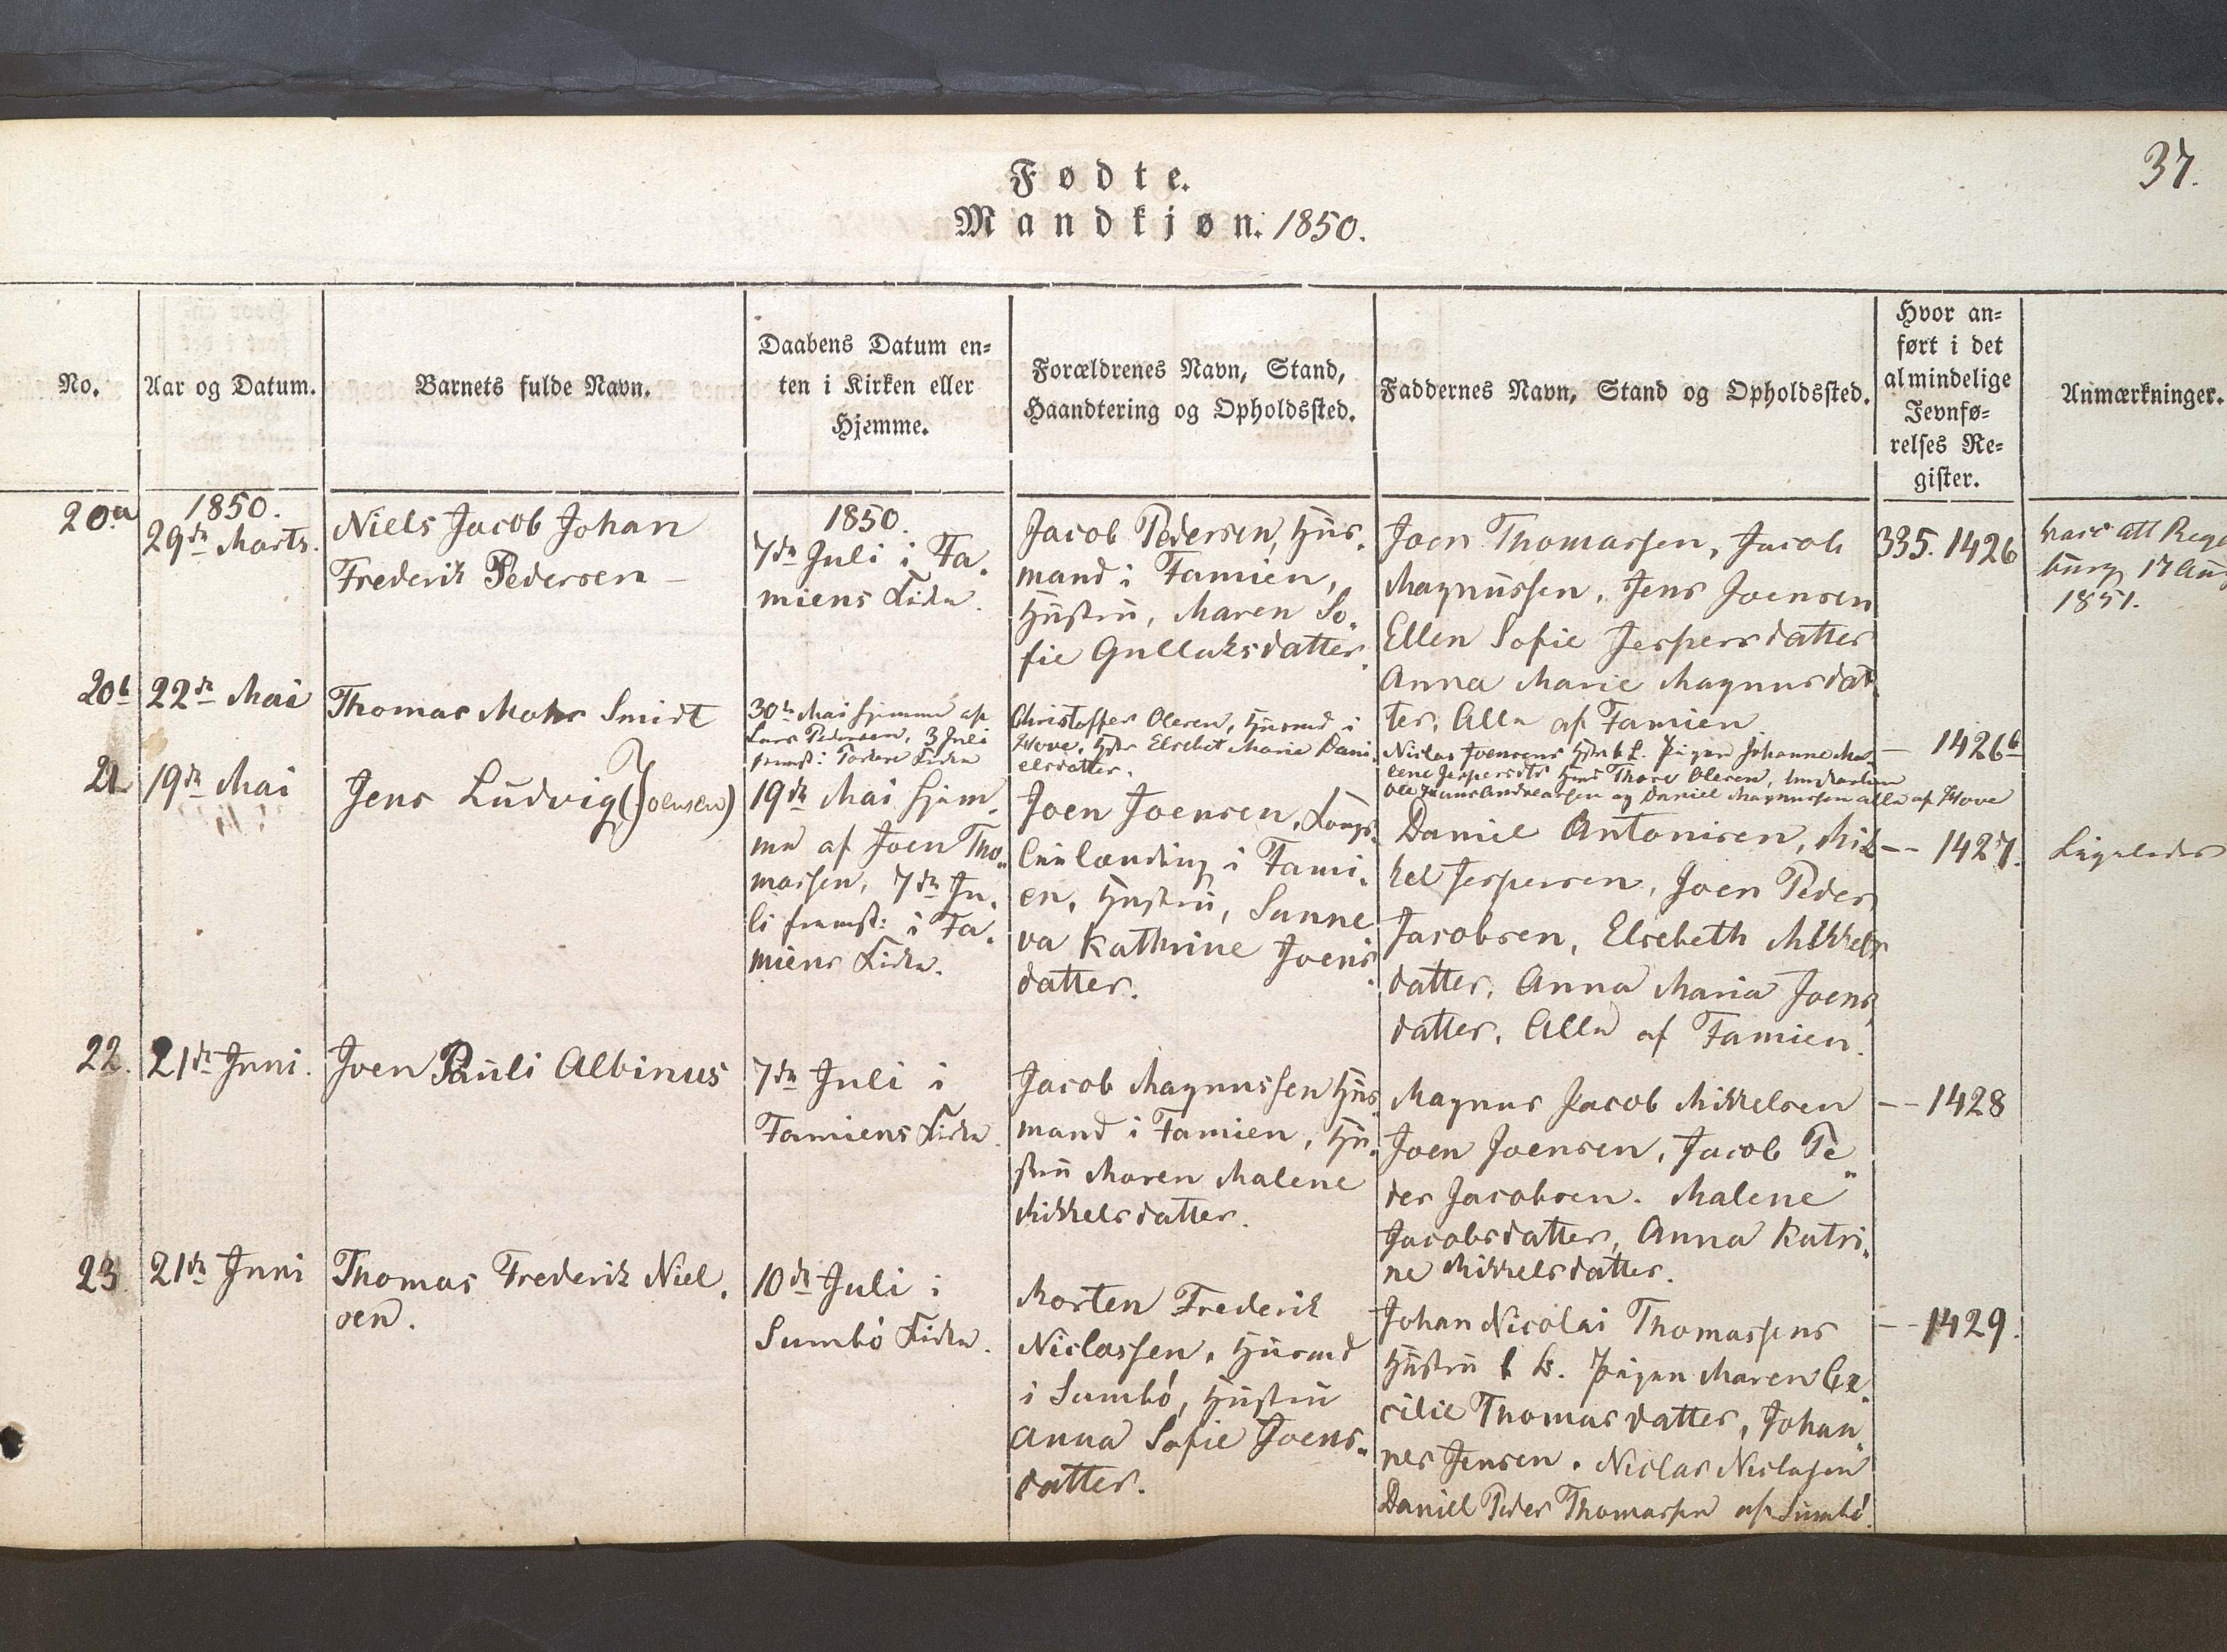 37.
Fødte.
Mandkjøn. 1850.
No.
Aar og Datum.
Barnets fulde Navn.
Daabens Datum en=
ten i Kirken eller
Hjemme.
Forældrenes Navn, Stand,
Haandtering og Opholdssted.
Faddernes Navn, Stand og Opholdssted.
Hvor an=
ført i det
almindelige
Jevnfø=
relses Re=
gister.
Anmærkninger.
20a
1850.
29de Marts.
Niels Jacob Johan
Frederik Pedersen
1850.
7de Juli i Fa-
miens Kirke.
Jacob Pedersen, Huus-
mand i Famien,
Hustru, Maren So-
fie Gulluksdatter.
Joen Thomassen, Jacob
Magnussen, Jens Joensen
Ellen Sofie Jespersdatter
Anna Marie Magnusdat-
ter, Alle af Famien
335. 1426
17 Aug
1851.
20b
22de Mai
Thomas Mohr Smidt
30te Mai hjemme af
Lars Pedersen, 3 Juli
fremst: i Porkere Kirke
Christoffer Olesen, Huusmd i
Hove, Hstr Elsebet Marie Dani-
elsdatter.
Niclas Joensens Hstr b. B. Pigen Johanne Ma-
lene Jespersdtr Thore Olesen,
Ole Hans Andreassen og Daniel Magnussen alle af Hove
— 1426b
21
19de Mai
Jens Ludvig (Joensen)
19de Mai hjem-
me af Joen Tho-
massen, 7de Ju-
li fremst: i Fa-
miens Kirke.
Joen Joensen, Kongs-
i Fami-
en, Hustru, Sunne-
va Kathrine Joens-
datter.
Daniel Antonisen, Mik-
kel Jespersen, Joen Peder
Jacobsen, Elsebeth Mikkels-
datter, Anna Maria Joens-
datter, Alle af Famien.
-- 1427.
Ligeledes
22.
21de Juni.
Joen Pauli Albinus
7de Juli i
Famiens Kirke.
Jacob Magnussen Huus-
mand i Famien, Hu-
stru Maren Malene
Mikkelsdatter.
Magnus Jacob Mikkelsen
Joen Joensen, Jacob Pe-
der Jacobsen. Malene
Jacobsdatter, Anna Katri-
ne Mikkelsdatter.
-- 1428
23.
21de Juni
Thomas Frederik Niel-
sen.
10de Juli i
Sumbö Kirke.
Morten Frederik
Niclassen, Huusmd
i Sumbö, Hustru
Anna Sofie Joens-
datter.
Johan Nicolai Thomassens
Hustru b. B. Pigen Maren Ce-
cilie Thomasdatter, Johan-
nes Jensen. Niclas Niclasen
Daniel Peder Thomassen af Sumbö.
-- 1429.